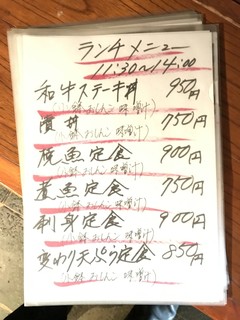 ランチメニュー
11:30〜14:00
和牛ステーキ丼 950円
(小鉢 おしんこ 味噌汁)
鰻丼 750円
(小鉢 おしんこ 味噌汁)
焼魚定食 900円
(小鉢 おしんこ 味噌汁)
煮魚定食 750円
(小鉢 おしんこ 味噌汁)
刺身定食 900円
(小鉢 おしんこ 味噌汁)
変わり天ぷら定食 850円
(小鉢 おしんこ 味噌汁)